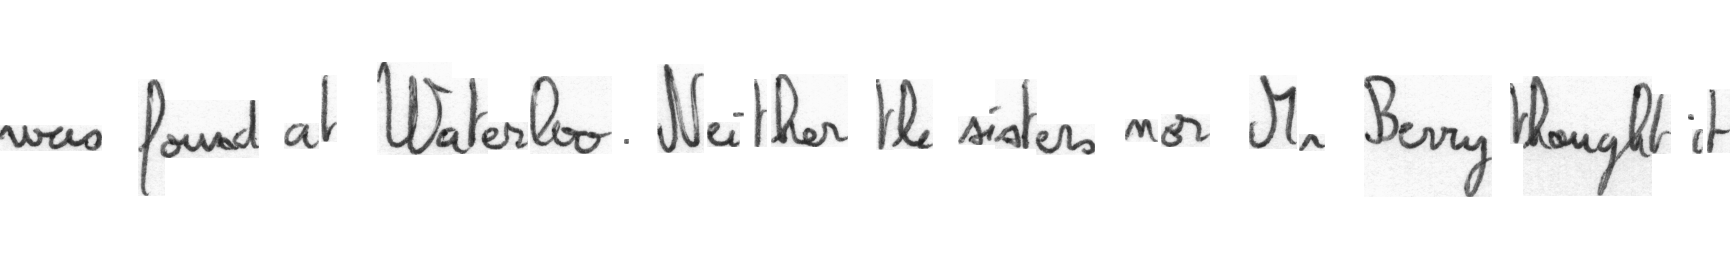 was found at Waterloo. Neither the sisters nor Mr Berry thought it